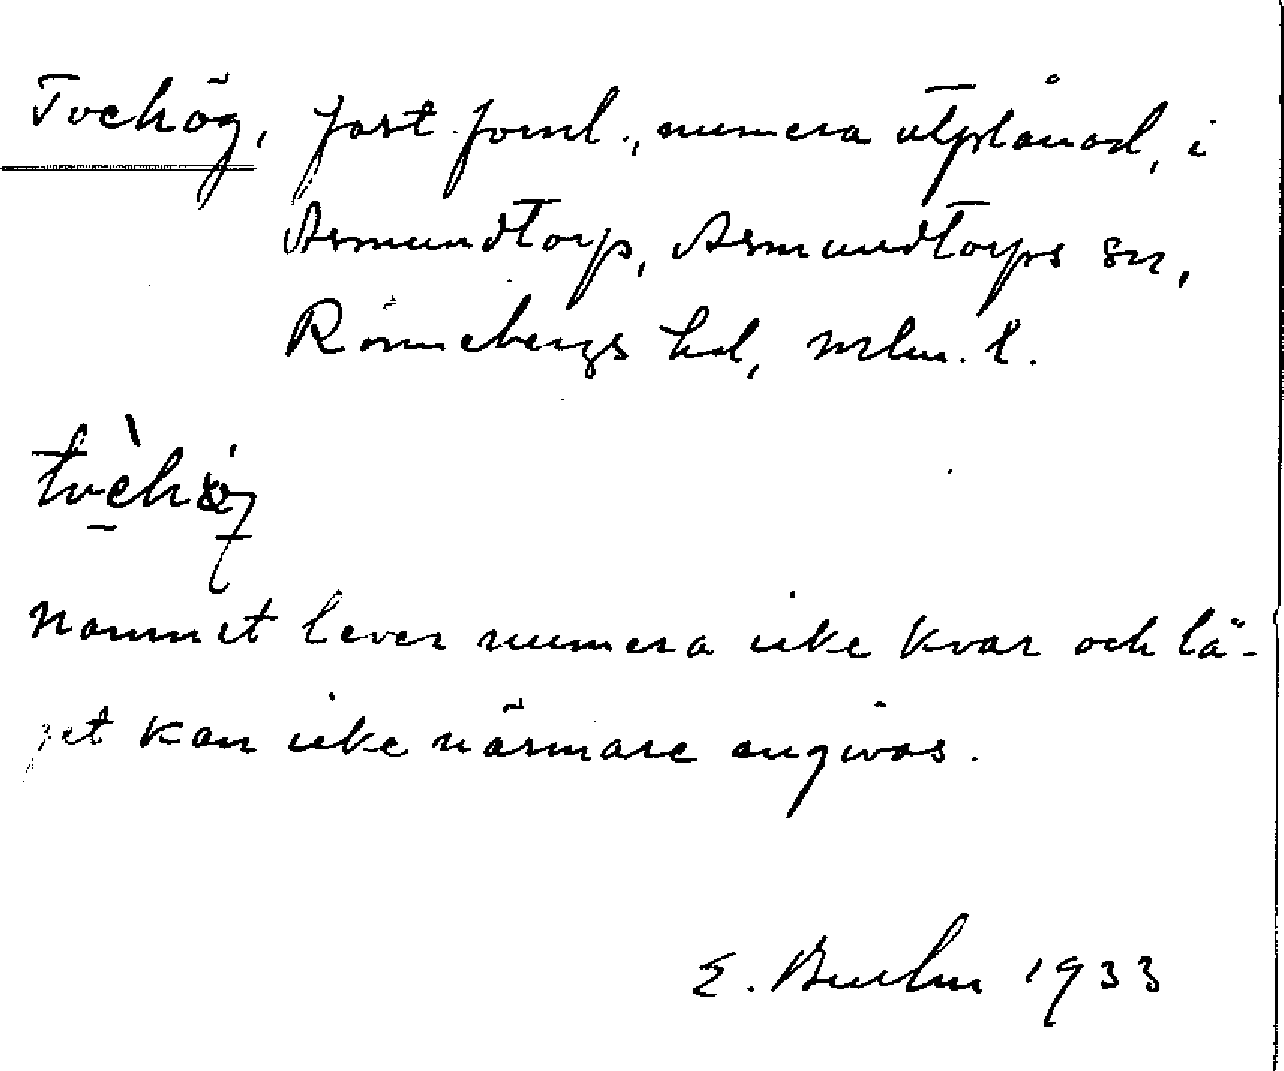 Tvehög, fast forml., numera utplånad, i
Asmundtorp, Asmundtorps sn,
Rönnebergs hd, Mlm. l.
tvèhög
Namnet lever numera icke kvar och lä-
get kan icke närmare angivas.
E. 1933